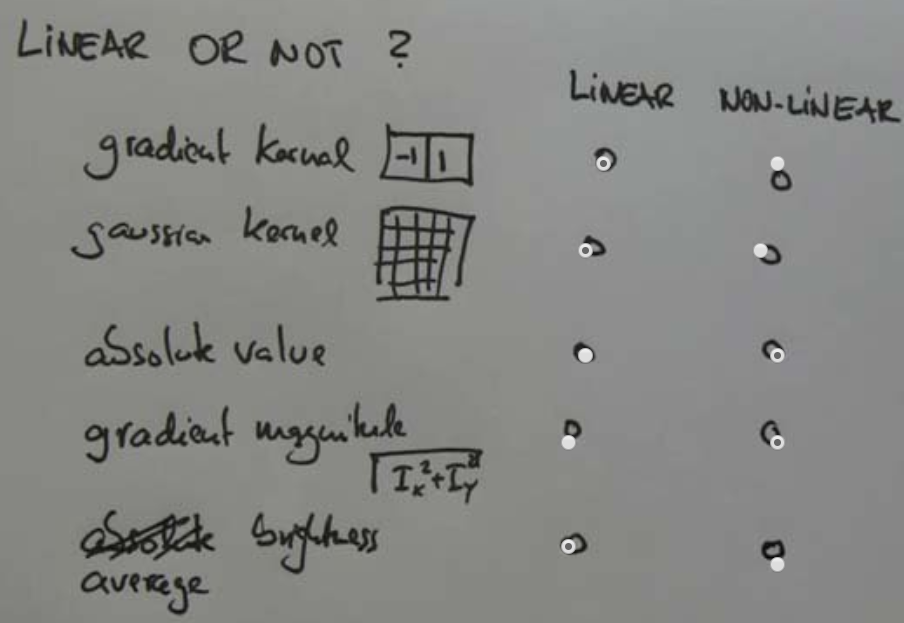 LINEAR OR NOT ?
LINEAR NON-LINEAR
gradient kernal -1 1
gaussian kernel
absolute value
gradient magnitude
√Ix²+Iy²
absolute brightness
average